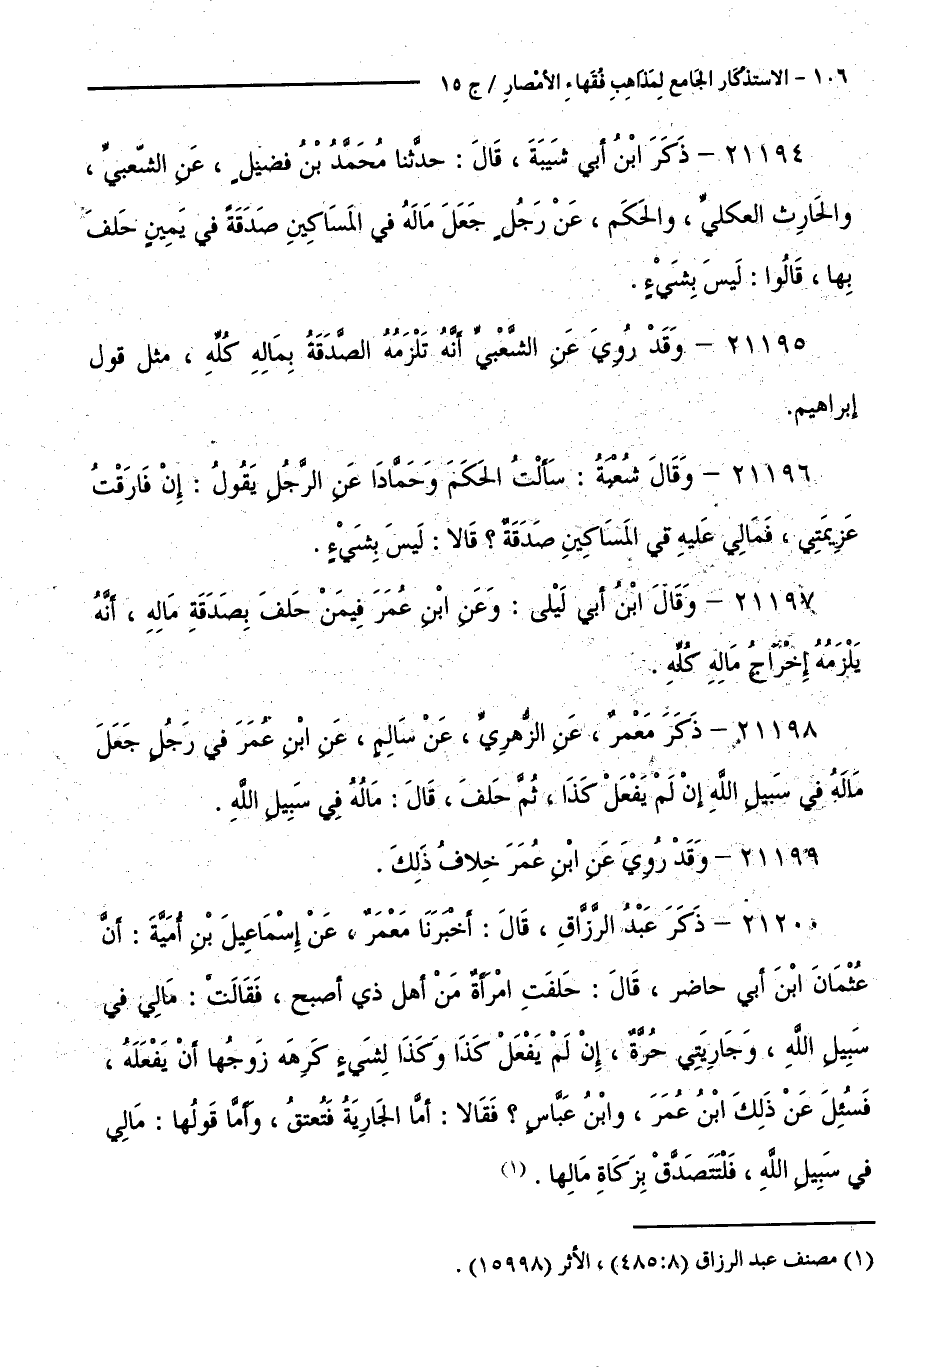 ١٠٦ - الاستذكار الجامع لِمَذاهِبِ فُقَهاءِ الأمْصارِ / ج ١٥
٢١١٩٤ - ذَكَرَ ابْنُ أبي شَيبَةَ ، قَالَ : حدَّثنا مُحَمَّدُ بْنُ فضيلٍ ، عَنِ الشّعبيِّ ،
والحَارِث العكليِّ ، والحَكَم ، عَنْ رَجُلٍ جَعَلَ مَالَهُ في المَسَاكِينِ صَدَقَةً في يَمِينٍ حَلفَ
بِها ، قَالُوا : لَيسَ بِشَيْءٍ .
٢١١٩٥ - وَقَدْ رُوِيَ عَنِ الشَّعْبيِّ أنَّهُ تَلْزَمُهُ الصَّدَقَةُ بِمَالِهِ كُلِّهِ ، مثل قول
إبراهيم.
٢١١٩٦ - وَقَالَ شُعْبَةُ : سَألْتُ الحَكَمَ وَحَمَّادَا عَنِ الرَّجُلِ يَقُولُ : إِنْ فَارَقْتُ
عَزِيمَتِي ، فَمَالِي عَليهِ في المَسَاكِينِ صَدَقَةٌ ؟ قَالا : لَيسَ بِشَيْءٍ .
٢١١٩٧ - وَقَالَ ابْنُ أبي لَيْلى : وَعَنِ ابْنِ عُمَرَ فِيمَنْ حَلفَ بِصَدَقَةِ مَالِهِ ، أنَّهُ
يَلْزَمُهُ إِخْرَاجُ مَالِهِ كُلِّهِ .
٢١١٩٨ - ذَكَرَ مَعْمرٌ ، عَنِ الزُّهريِّ ، عَنْ سَالِمٍ ، عَنِ ابْنِ عُمَرَ في رَجُلٍ جَعَلَ
مَالَهُ في سَبيلِ اللَّهِ إنْ لَمْ يَفْعَلْ كَذَا ، ثُمَّ حَلفَ ، قَالَ : مَالُهُ فِي سَبِيلِ اللَّهِ .
٢١١٩٩ - وَقَدْ رُوِيَ عَنِ ابْنِ عُمَرَ خِلافُ ذَلِكَ .
٢١٢٠٠ - ذَكَرَ عَبْدُ الرَّزَّاقِ ، قَالَ : أخْبَرَنَا مَعْمَرٌ ، عَنْ إِسْمَاعِيلَ بْنِ أُمَيَّةَ : أنَّ
عُثْمَانَ ابْنَ أبي حاضر ، قَالَ : حَلفَتِ امْرأَةٌ مَنْ أهل ذي أصبح ، فَقَالَتْ : مَالِي في
سَبِيلِ اللَّهِ ، وَجَارِيَتِي حُرَّةٌ ، إِنْ لَمْ يَفْعَلْ كَذَا وَكَذَا لِشَيءٍ كَرِهَه زَوجُها أنْ يَفْعَلَهُ ،
فَسُئِلَ عَنْ ذَلِكَ ابْنُ عُمَرَ ، وابْنُ عَبَّاسٍ ؟ فَقَالا : أمَّا الجَارِيَةُ فَتُعتقُ ، وَأمَّا قَولُها : مَالِي
في سَبِيلِ اللَّهِ ، فَلْتَتَصَدَّقْ بِزَكَاةِ مَالِها . (١)
(١) مصنف عبد الرزاق (٨:٤٨٥) ، الأثر (١٥٩٩٨) .